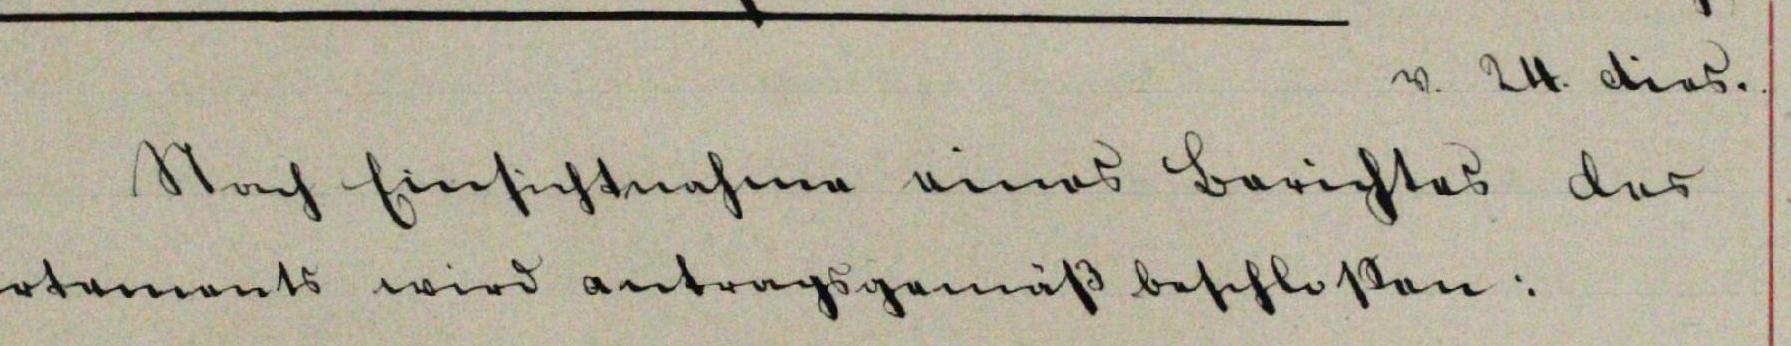 v. 24. dies.
Nach Einsichtnahme eines Berichtes des
rtements wird antragsgemäß beschloßen: